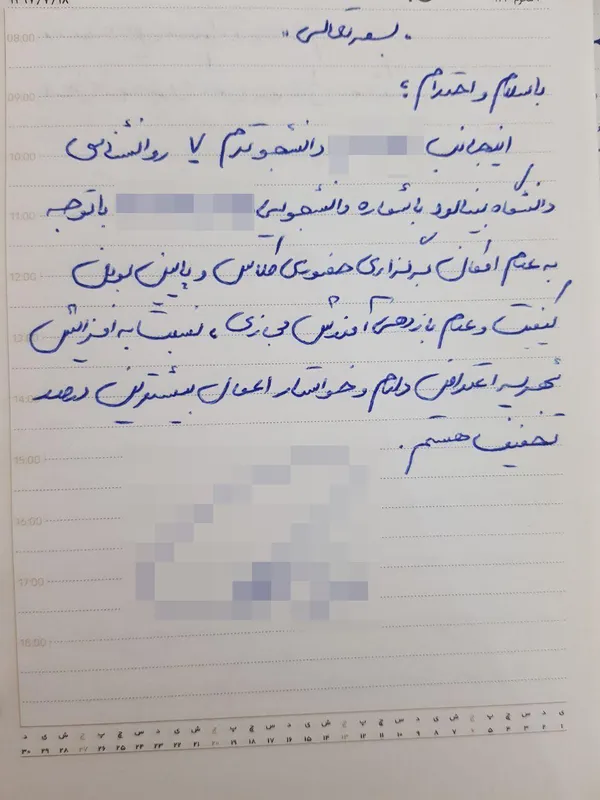 ۱۳۹۷/۷/۱۸
« بسمه تعالی »
08:00
باسلام و احترام ؛
09:00
اینجانب دانشجو ترم ۷ روانشناسی
10:00
دانشگاه بینالود با شماره دانشجویی باتوجه
11:00
به عدم امکان برگزاری حضوری کلاس و پایین بودن
12:00
کیفیت و عدم بازدهی آموزش مجازی ، نسبت به افزایش
13:00
شهریه اعتراض دارم و خواستار اعمال بیشترین درصد
14:00
تخفیف هستم .
15:00
16:00
17:00
18:00
ی د س چ پ ش ی د س چ پ ش ی د س چ پ ش ی د
۱ ۲ ۳ ۴ ۵ ۶ ۷ ۸ ۹ ۱۰ ۱۱ ۱۲ ۱۳ ۱۴ ۱۵ ۱۶ ۱۷ ۱۸ ۱۹ ۲۰ ۲۱ ۲۲ ۲۳ ۲۴ ۲۵ ۲۶ ۲۷ ۲۸ ۲۹ ۳۰